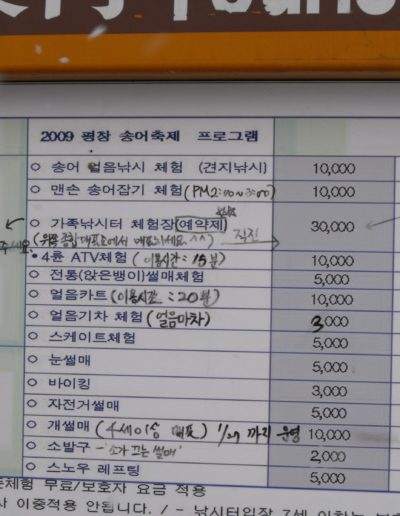 2009 평창 송어축제 프로그램
○ 송어 얼음낚시 체험 (견지낚시) 10,000
○ 맨손 송어잡기 체험 (PM2:00~3:00) 10,000
○ 가족낚시터 체험장(예약제) 30,000
직진
○ 4륜 ATV체험 (이용시간:15분) 10,000
○ 전통(앉은뱅이)썰매체험 5,000
○ 얼음카트(이용시간:20분) 10,000
○ 얼음기차 체험(얼음마차) 3,000
○ 스케이트체험 5,000
○ 눈썰매 5,000
○ 바이킹 3,000
○ 자전거썰매 5,000
○ 개썰매 (4세이상 매표) 1/27 까지 운영 10,000
○ 소발구 -'소가 끄는 썰매' 2,000
○ 스노우 레프팅 5,000
체험 무료/보호자 요금 적용
이중적용 안됩니다. / - 낚시터입장 7세